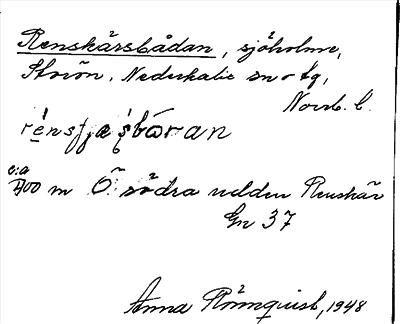 Renskärsbådan, sjöholme,
Storön, Nederkalix sn o tg,
Norrb. l.
c:a
700 m Ö. södra udden Renskär
Gn 37
Anna Rönnquist, 1948